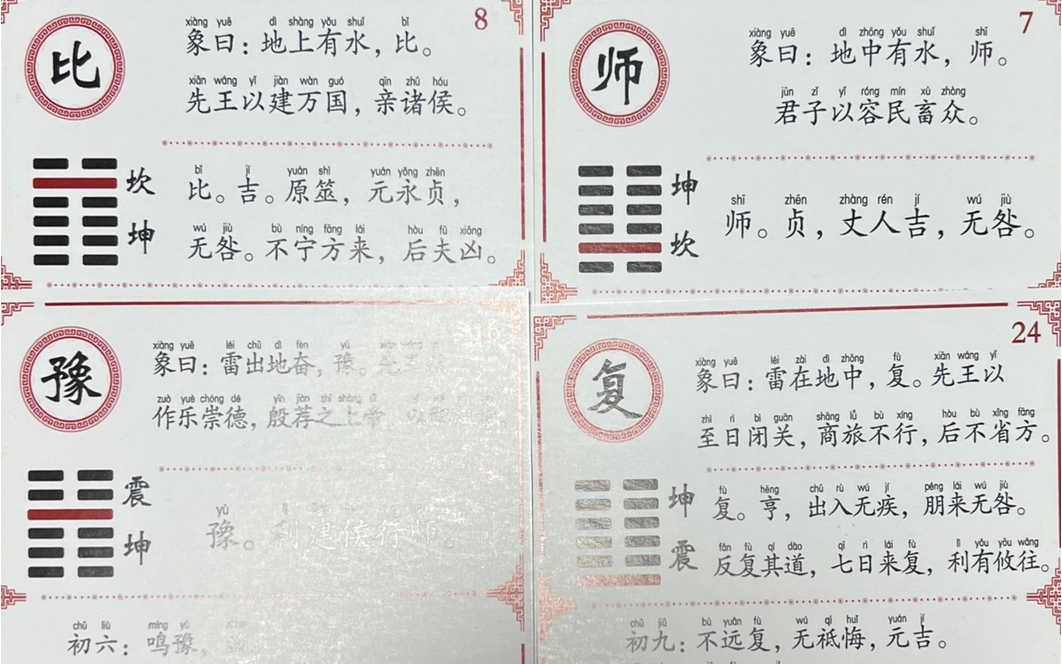 8
比
xiàng yuē dì shàng yǒu shuǐ bǐ
象曰：地上有水，比。
xiān wáng yǐ jiàn wàn guó qīn zhū hóu
先王以建万国，亲诸侯。
坎
坤
bǐ jí yuán shì yuán yǒng zhēn
比。吉。原筮，元永贞，
wú jiù bù níng fāng lái hòu fū xiōng
无咎。不宁方来，后夫凶。
7
师
xiàng yuē dì zhōng yǒu shuǐ shī
象曰：地中有水，师。
jūn zǐ yǐ róng mín xù zhòng
君子以容民畜众。
坤
坎
shī zhēn zhàng rén jí wú jiù
师。贞，丈人吉，无咎。
16
豫
xiàng yuē léi chū dì fèn yù
象曰：雷出地奋，豫。先
zuò yuè chóng dé yīn jiàn zhī shàng dì
作乐崇德，殷荐之上帝，以
震
坤
yù
豫。利建侯行师。
chū liù míng yù
初六：鸣豫，
24
复
xiàng yuē léi zài dì zhōng fù xiān wáng yǐ
象曰：雷在地中，复。先王以
zhì rì bì guān shāng lǚ bù xíng hòu bù xǐng fāng
至日闭关，商旅不行，后不省方。
坤
震
fù hēng chū rù wú jí péng lái wú jiù
复。亨，出入无疾，朋来无咎。
fǎn fù qí dào qī rì lái fù lì yǒu yōu wǎng
反复其道，七日来复，利有攸往。
chū jiǔ bù yuǎn fù wú qí huǐ yuán jí
初九：不远复，无祗悔，元吉。